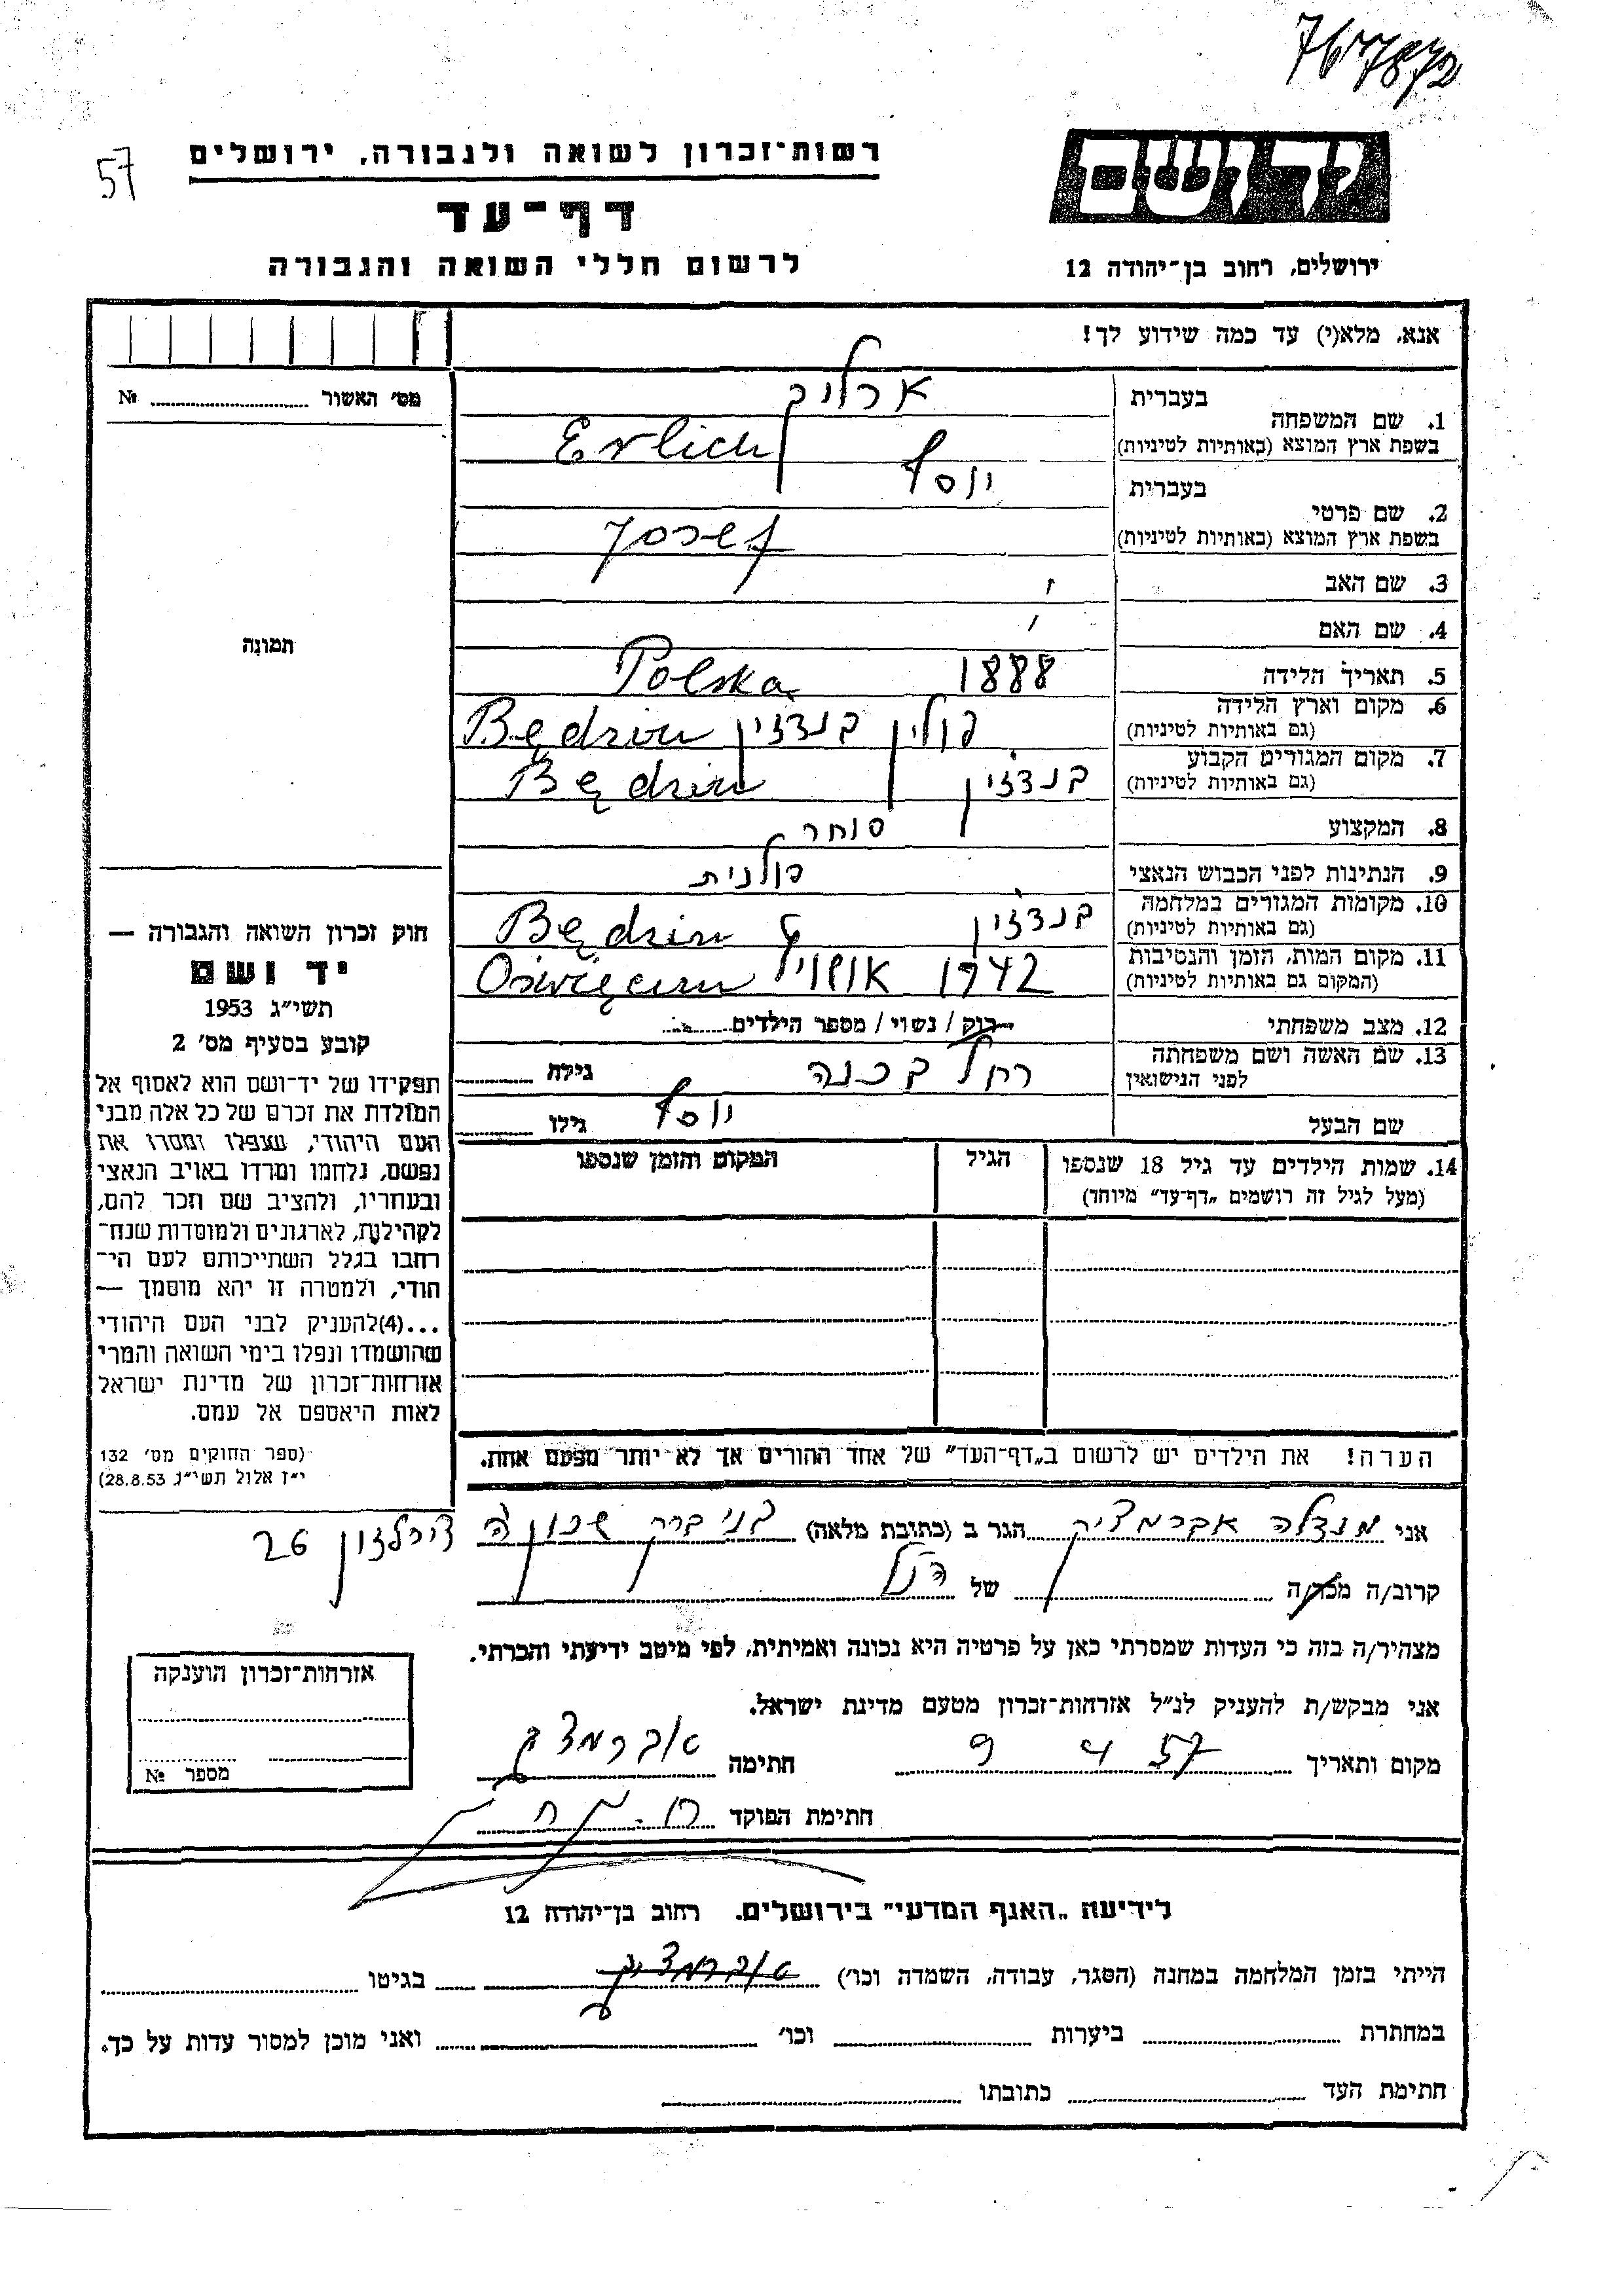 57
רשות־זכרון לשואה ולגבורה, ירושלים
דף־עד
לרשום חללי השואה והגבורה
יד ושם
ירושלים, רחוב בן־יהודה 12
אנא, מלא(י) עד כמה שידוע לך!
מס׳ האשור № 
תמונה
1. שם המשפחה בעברית ארליך
בשפת ארץ המוצא (באותיות לטיניות) Erlich
2. שם פרטי בעברית יוסף
בשפת ארץ המוצא (באותיות לטיניות) Josef
3. שם האב
4. שם האם
5. תאריך הלידה 1888 Polska
6. מקום וארץ הלידה (גם באותיות לטיניות) פולין בנדזין Będzin
7. מקום המגורים הקבוע (גם באותיות לטיניות) בנדזין Będzin
8. המקצוע סוחר
9. הנתינות לפני הכבוש הנאצי פולנית
10. מקומות המגורים במלחמה (גם באותיות לטיניות) בנדזין Będzin
11. מקום המות, הזמן והנסיבות (המקום גם באותיות לטיניות) 1942 Oświęcim
12. מצב משפחתי רוק / נשוי / מספר הילדים
13. שם האשה ושם משפחתה לפני הנישואין רחל גילה
שם הבעל יוסף גילו
14. שמות הילדים עד גיל 18 שנספו (מעל לגיל זה רושמים „דף־עד״ מיוחד) הגיל המקום והזמן שנספו
הערה! את הילדים יש לרשום ב„דף־העד״ של אחד ההורים אך לא יותר מפעם אחת.
חוק זכרון השואה והגבורה —
יד ושם
תשי״ג 1953
קובע בסעיף מס׳ 2
תפקידו של יד־ושם הוא לאסוף אל
המולדת את זכרם של כל אלה מבני
העם היהודי, שנפלו ומסרו את
נפשם, נלחמו ומרדו באויב הנאצי
ובעוזריו, ולהציב שם וזכר להם,
לקהילות, לארגונים ולמוסדות שנח־
רבו בגלל השתייכותם לעם הי־
הודי, ולמטרה זו יהא מוסמך —
...(4)להעניק לבני העם היהודי
שהושמדו ונפלו בימי השואה והמרי
אזרחות־זכרון של מדינת ישראל
לאות היאספם אל עמם.
(ספר החוקים מס׳ 132
י״ז אלול תשי״ג 28.8.53)
אני מנדלה אברמציק הגר ב (כתובת מלאה) בני ברק שכון ה 26
קרוב/ה מכר/ה של הנ״ל
מצהיר/ה בזה כי העדות שמסרתי כאן על פרטיה היא נכונה ואמיתית, לפי מיטב ידיעתי והכרתי.
אני מבקש/ת להעניק לנ״ל אזרחות־זכרון מטעם מדינת ישראל.
מקום ותאריך 9 4 57 חתימה
חתימת הפוקד
אזרחות־זכרון הוענקה
מספר №
לידיעת „האגף המדעי״ בירושלים, רחוב בן־יהודה 12
הייתי בזמן המלחמה במחנה (הסגר, עבודה, השמדה וכו׳) בגיטו
במחתרת ביערות וכו׳ ואני מוכן למסור עדות על כך.
חתימת העד כתובתו